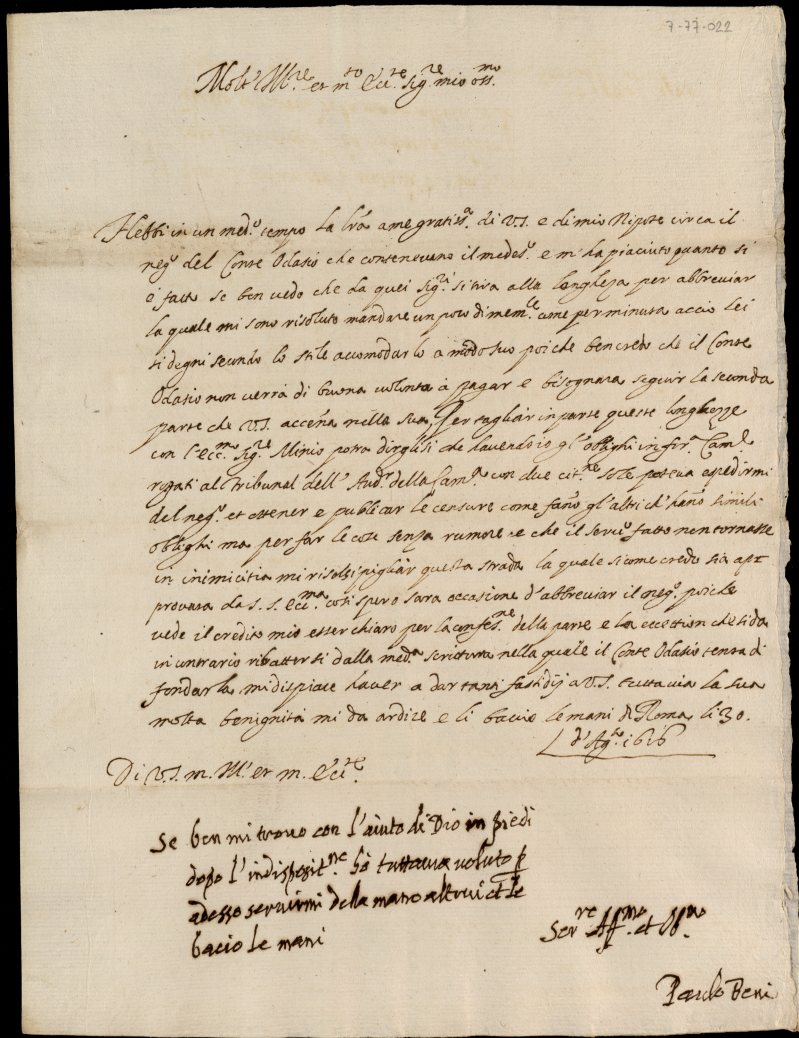 7-77-022
Molt' Ill.re et m.to Ecc.te Sig.re mio oss.mo
Hebbi in un med.o tempo la lra a me gratiss.a di V.S. e di mio Nipote circa il
neg.o del Conte Odasio che contenevano il medes.o e m'ha piaciuto quanto si
è fatto se ben vedo che da quei Sig.ri si tira alla longheza per abbreviar
la quale mi sono risoluto mandare un poco di mem.le come per minuta acciò lei
si degni secondo lo stile accomodarlo a modo suo poiche ben credo che il Conte
Odasio non verrà di buona volontà à pagar e bisognara seguir la seconda
parte che V.S. accena nella sua, Per tagliar in parte queste longhezze
con l'ecc.mo Sig.re Minio potra dirglisi che havendo io gl'oblighi in for.a Cam.le
rogati al Tribunal dell'Aud.r della Cam.a con due cit.ne sole poteva espedirmi
del neg.o et ottener e publicar le censure come fano gl'altri ch'hano simili
oblighi ma per far le cose senza rumore e che il serv.o fatto non tornasse
in inimicitia mi risolsi pigliar questa strada la quale si come credo sia ap=
provata da S.S. Ecc.ma così spero sara occasione d'abbreviar il neg.o poiche
vede il credito mio esser chiaro per la confes.ne della parte e la eccettion che si da
in contrario ribattersi dalla med.a scrittura nella quale il Conte Odasio tenta di
fondarla, mi dispiace haver a dar tanti fastidij a V.S. tuttavia la sua
molta benignità mi da ardire e li bacio le mani di Roma li 30.
d'Ag.to 1616
Di V.S. m. Ill. et m. Ecc.te
Se ben mi trovo con l'aiuto di Dio in piedi
dopo l'indisposit.ne hò tuttavia voluto p
adesso servirmi della mano altrui et le
bacio le mani
Ser.re Aff.mo et Obb.mo
Paulo Beni